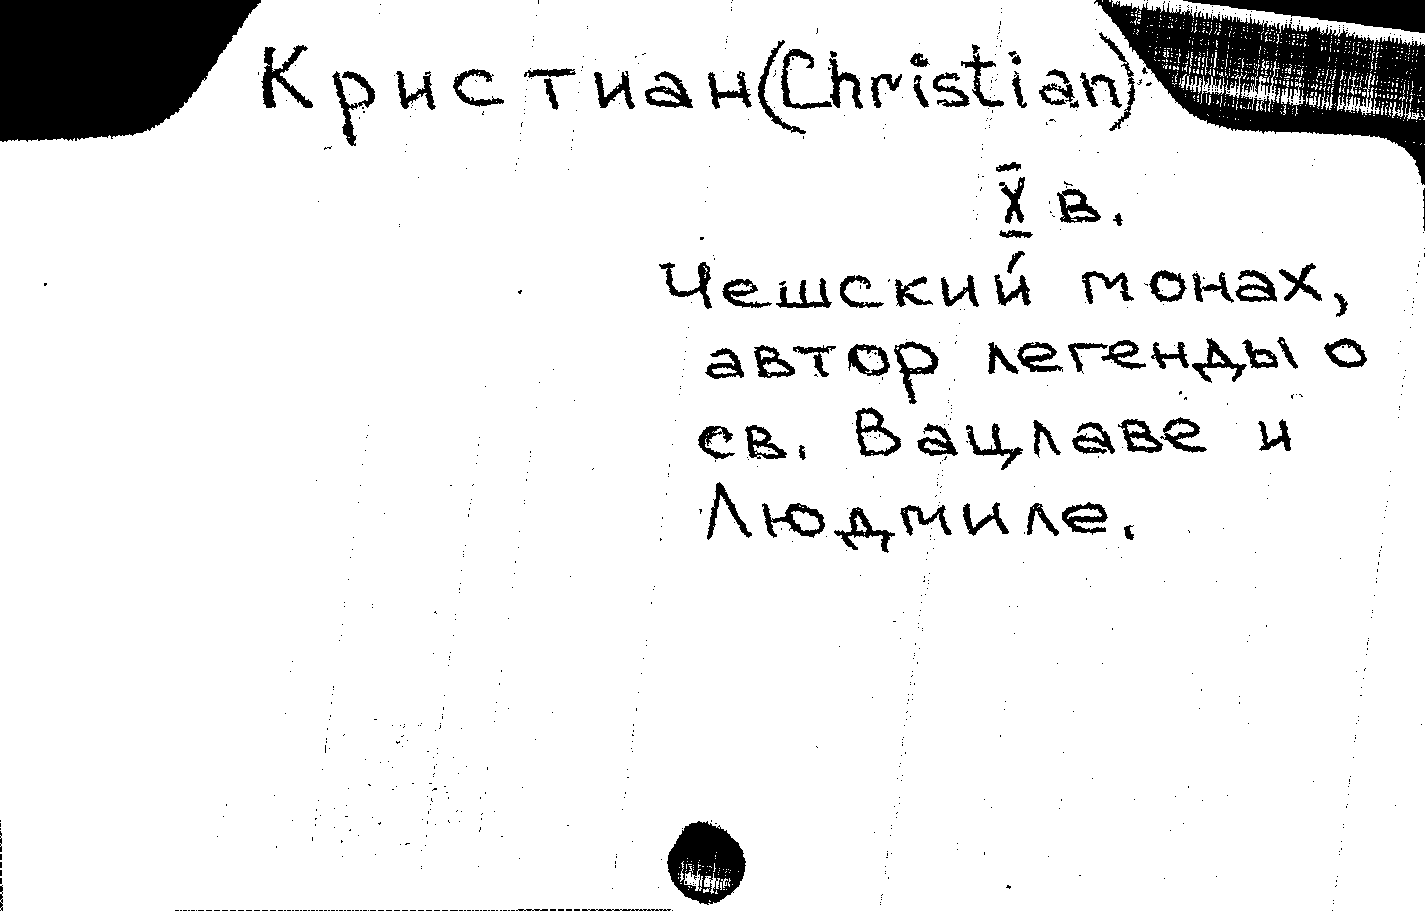 Кристиан (Christian)
X в.
Чешский монах,
автор легенды о
св. Вацлаве и
Людмиле.